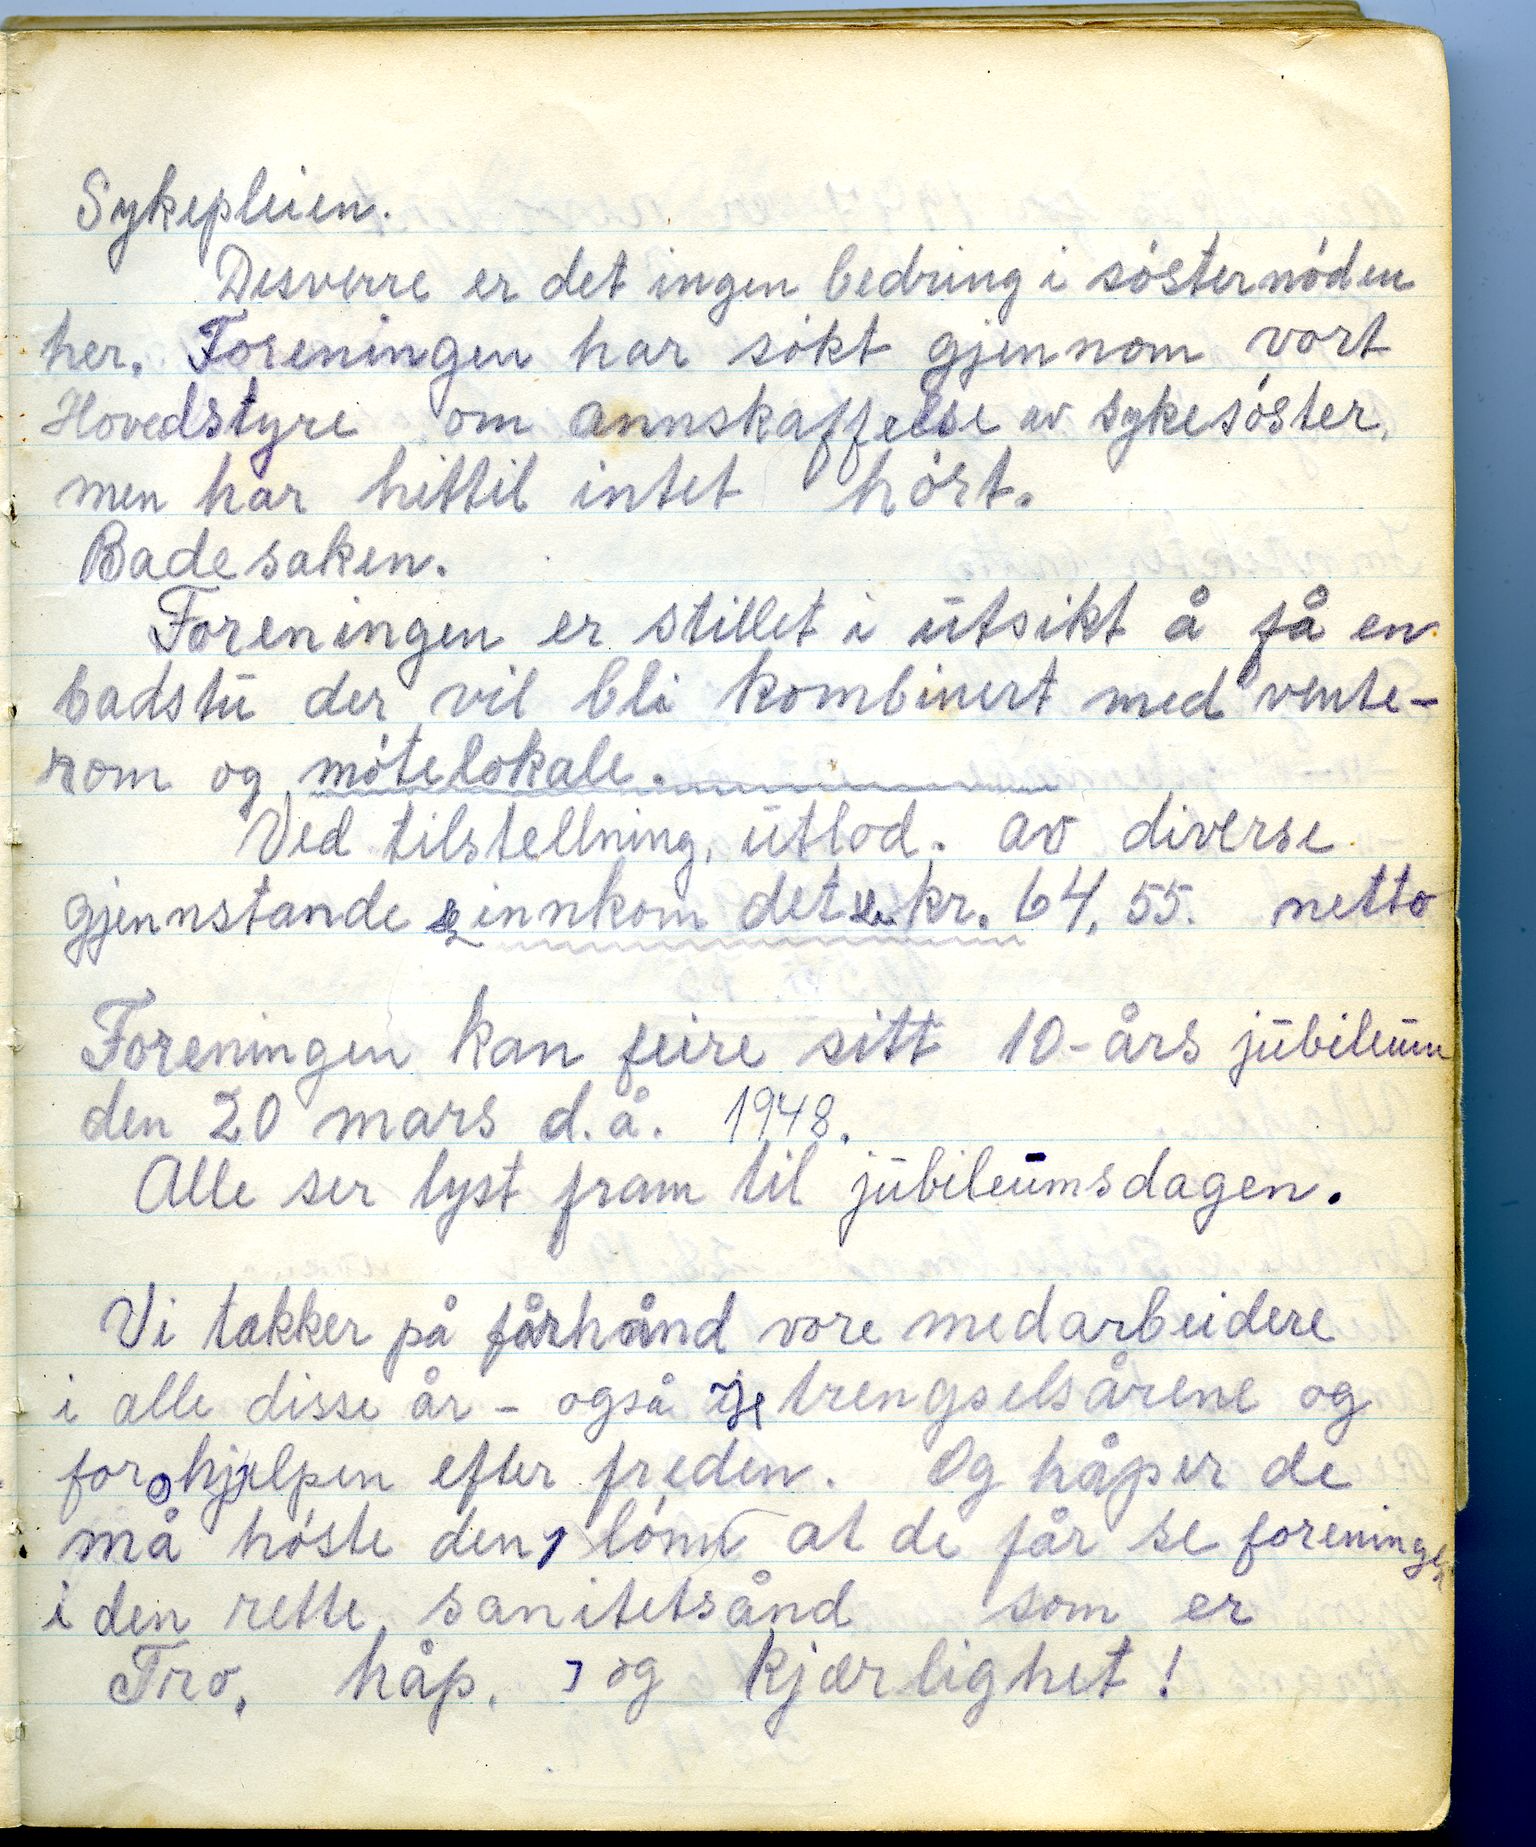 Sykepleien.
Desverre er det ingen bedring i søsternøden
her. Foreningen har søkt gjennom vort
Hovedstyre om annskaffelse av sykesøster,
men har hittil intet hørt.
Badesaken.
Foreningen er stillet i utsikt å få en
badstu der vil bli kombinert med vente-
rom og møtelokale.
Ved tilstellning, utlod. av diverse
gjennstande innkom det kr. 64,55. netto
Foreningen kan feire sitt 10-års jubileum
den 20 mars d.å. 1948.
Alle ser lyst fram til jubileumsdagen.
Vi takker på fårhånd vore medarbeidere
i alle disse år - også i trengselsårene og
for hjelpen efter freden. Og håper de
må høste den lønn at de får se foreningen
i den rette sanitetsånd som er
Tro, håp, og kjærlighet!